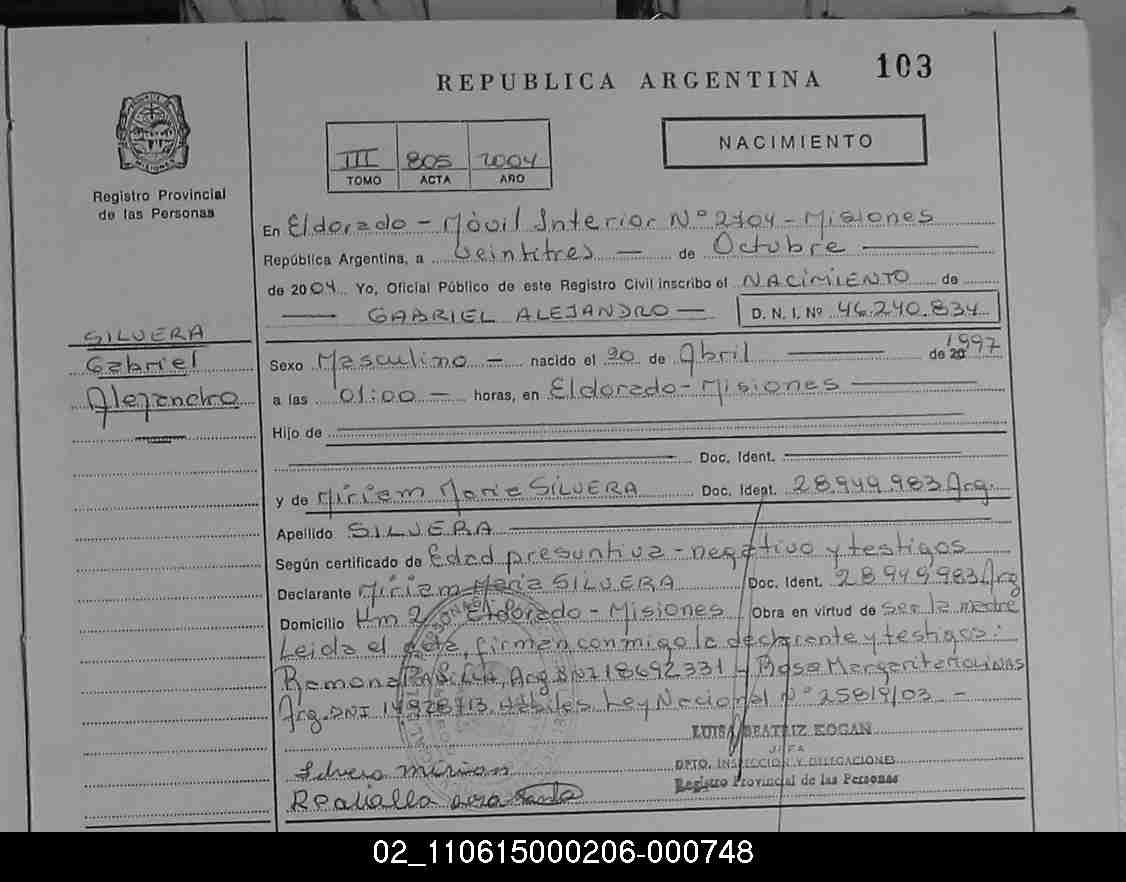 103
REPUBLICA ARGENTINA
NACIMIENTO
III 805 2004
TOMO ACTA AÑO
Registro Provincial
de las Personas
En Eldorado - Móvil Interior Nº 2704 - Misiones
República Argentina, a veintitres — de Octubre
de 2004 Yo, Oficial Público de este Registro Civil inscribo el NACIMIENTO de
— GABRIEL ALEJANDRO — D. N. I. Nº 46.240.834
SILVERA
Gabriel
Alejandro
Sexo Masculino — nacido el 20 de Abril — de 20 1997
a las 01:00 — horas, en Eldorado - Misiones
Hijo de
Doc. Ident.
y de Miriam Maria SILVERA Doc. Ident. 28.949.983 Arg.
Apellido SILVERA
Según certificado de Edad presuntiva - negativo y testigos
Declarante Miriam Maria SILVERA Doc. Ident. 28949983 Arg
Domicilio Km 2 Eldorado - Misiones Obra en virtud de ser la madre
Leida el acta, firman conmigo la declarante y testigos:
Ramona Arg. DNI 18692331 - Rosa Margarita MOLINAS
Arg. DNI 14928713. Hábiles Ley Nacional Nº 25819/03 -
LUISA BEATRIZ KOGAN
JEFA
DPTO. INSPECCION Y DELEGACIONES
Registro Provincial de las Personas
Silvera Mirian
02_110615000206-000748